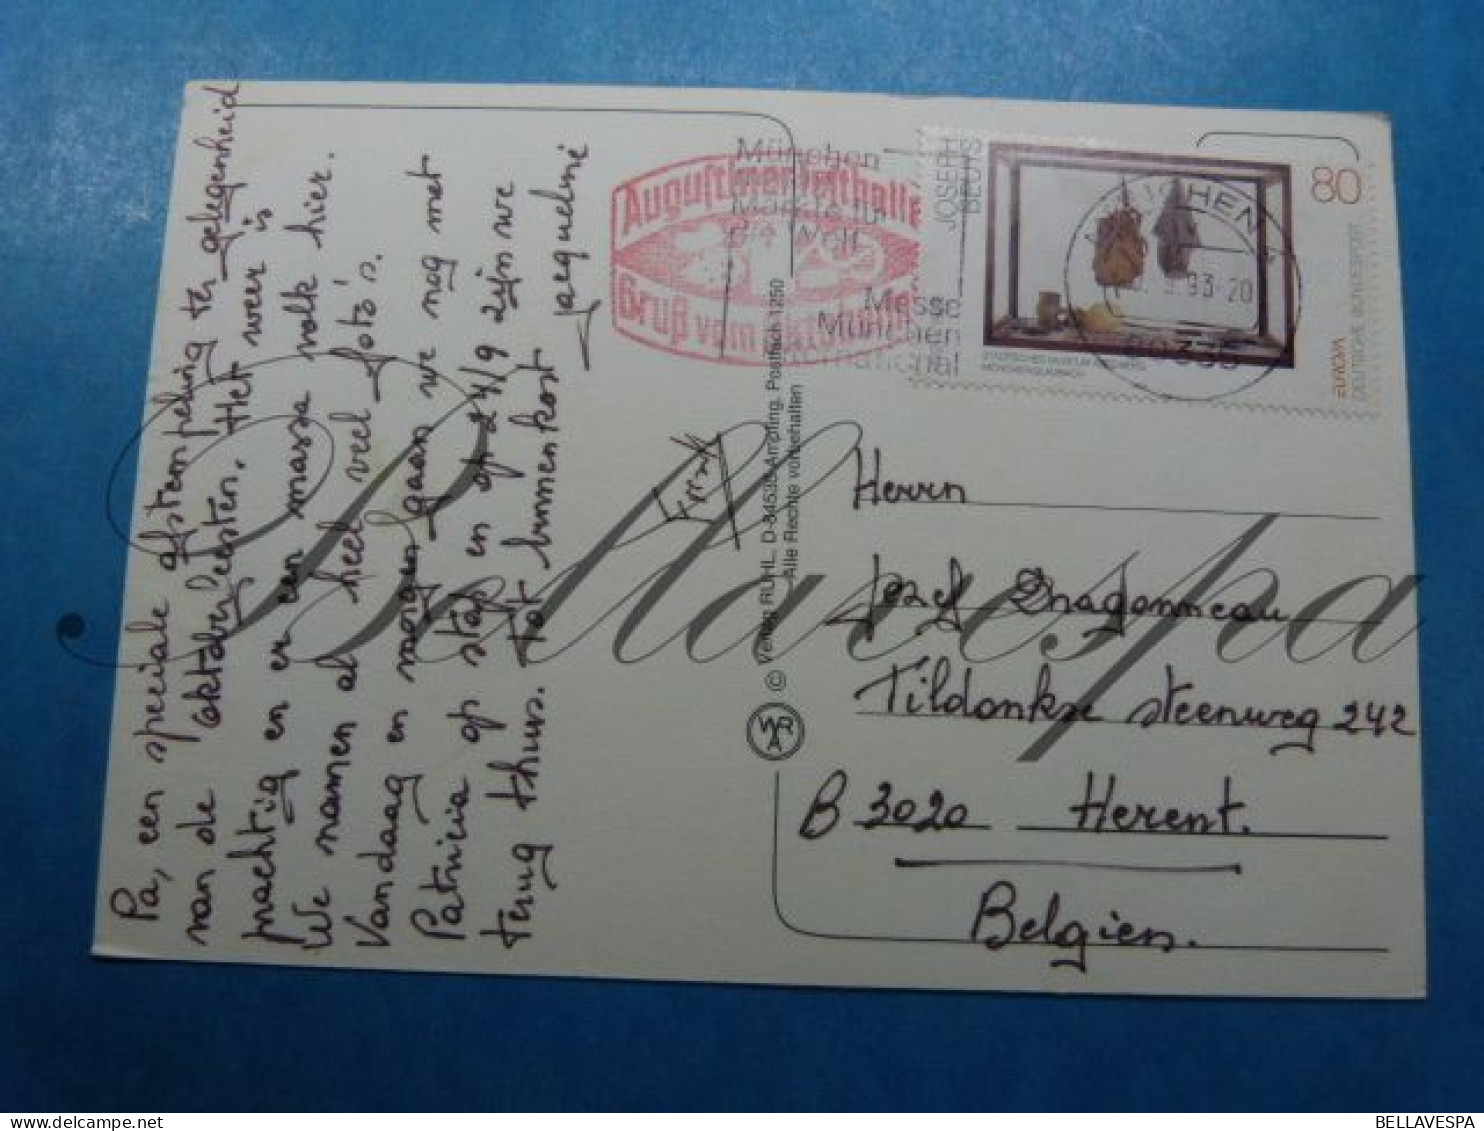 Pa, een speciale afstempeling ter gelegenheid
van de oktoberfeesten. Het weer is
prachtig en er een massa volk hier.
We namen al heel veel foto's.
Vandaag en morgen gaan we nog met
Patricia op stap en op 24/9 zijn we
terug thuis. Tot binnenkort
Jacqueline
Augustinerfesthalle
Gruß vom
München
Märkte für
die Welt
Messe
München
International
JOSEPH
BEUYS
80
DEUTSCHE BUNDESPOST
EUROPA
STÄDTISCHES MUSEUM ABTEIBERG
MÖNCHENGLADBACH
MÜNCHEN
9.93-20
© Verlag RÜHL, D-84539 Ampfing, Postfach 1250
Alle Rechte vorbehalten
Herrn
Jozef Dragonneau
Tildonkse steenweg 242
B 3020 Herent.
Belgien.
Bellavespa
BELLAVESPA